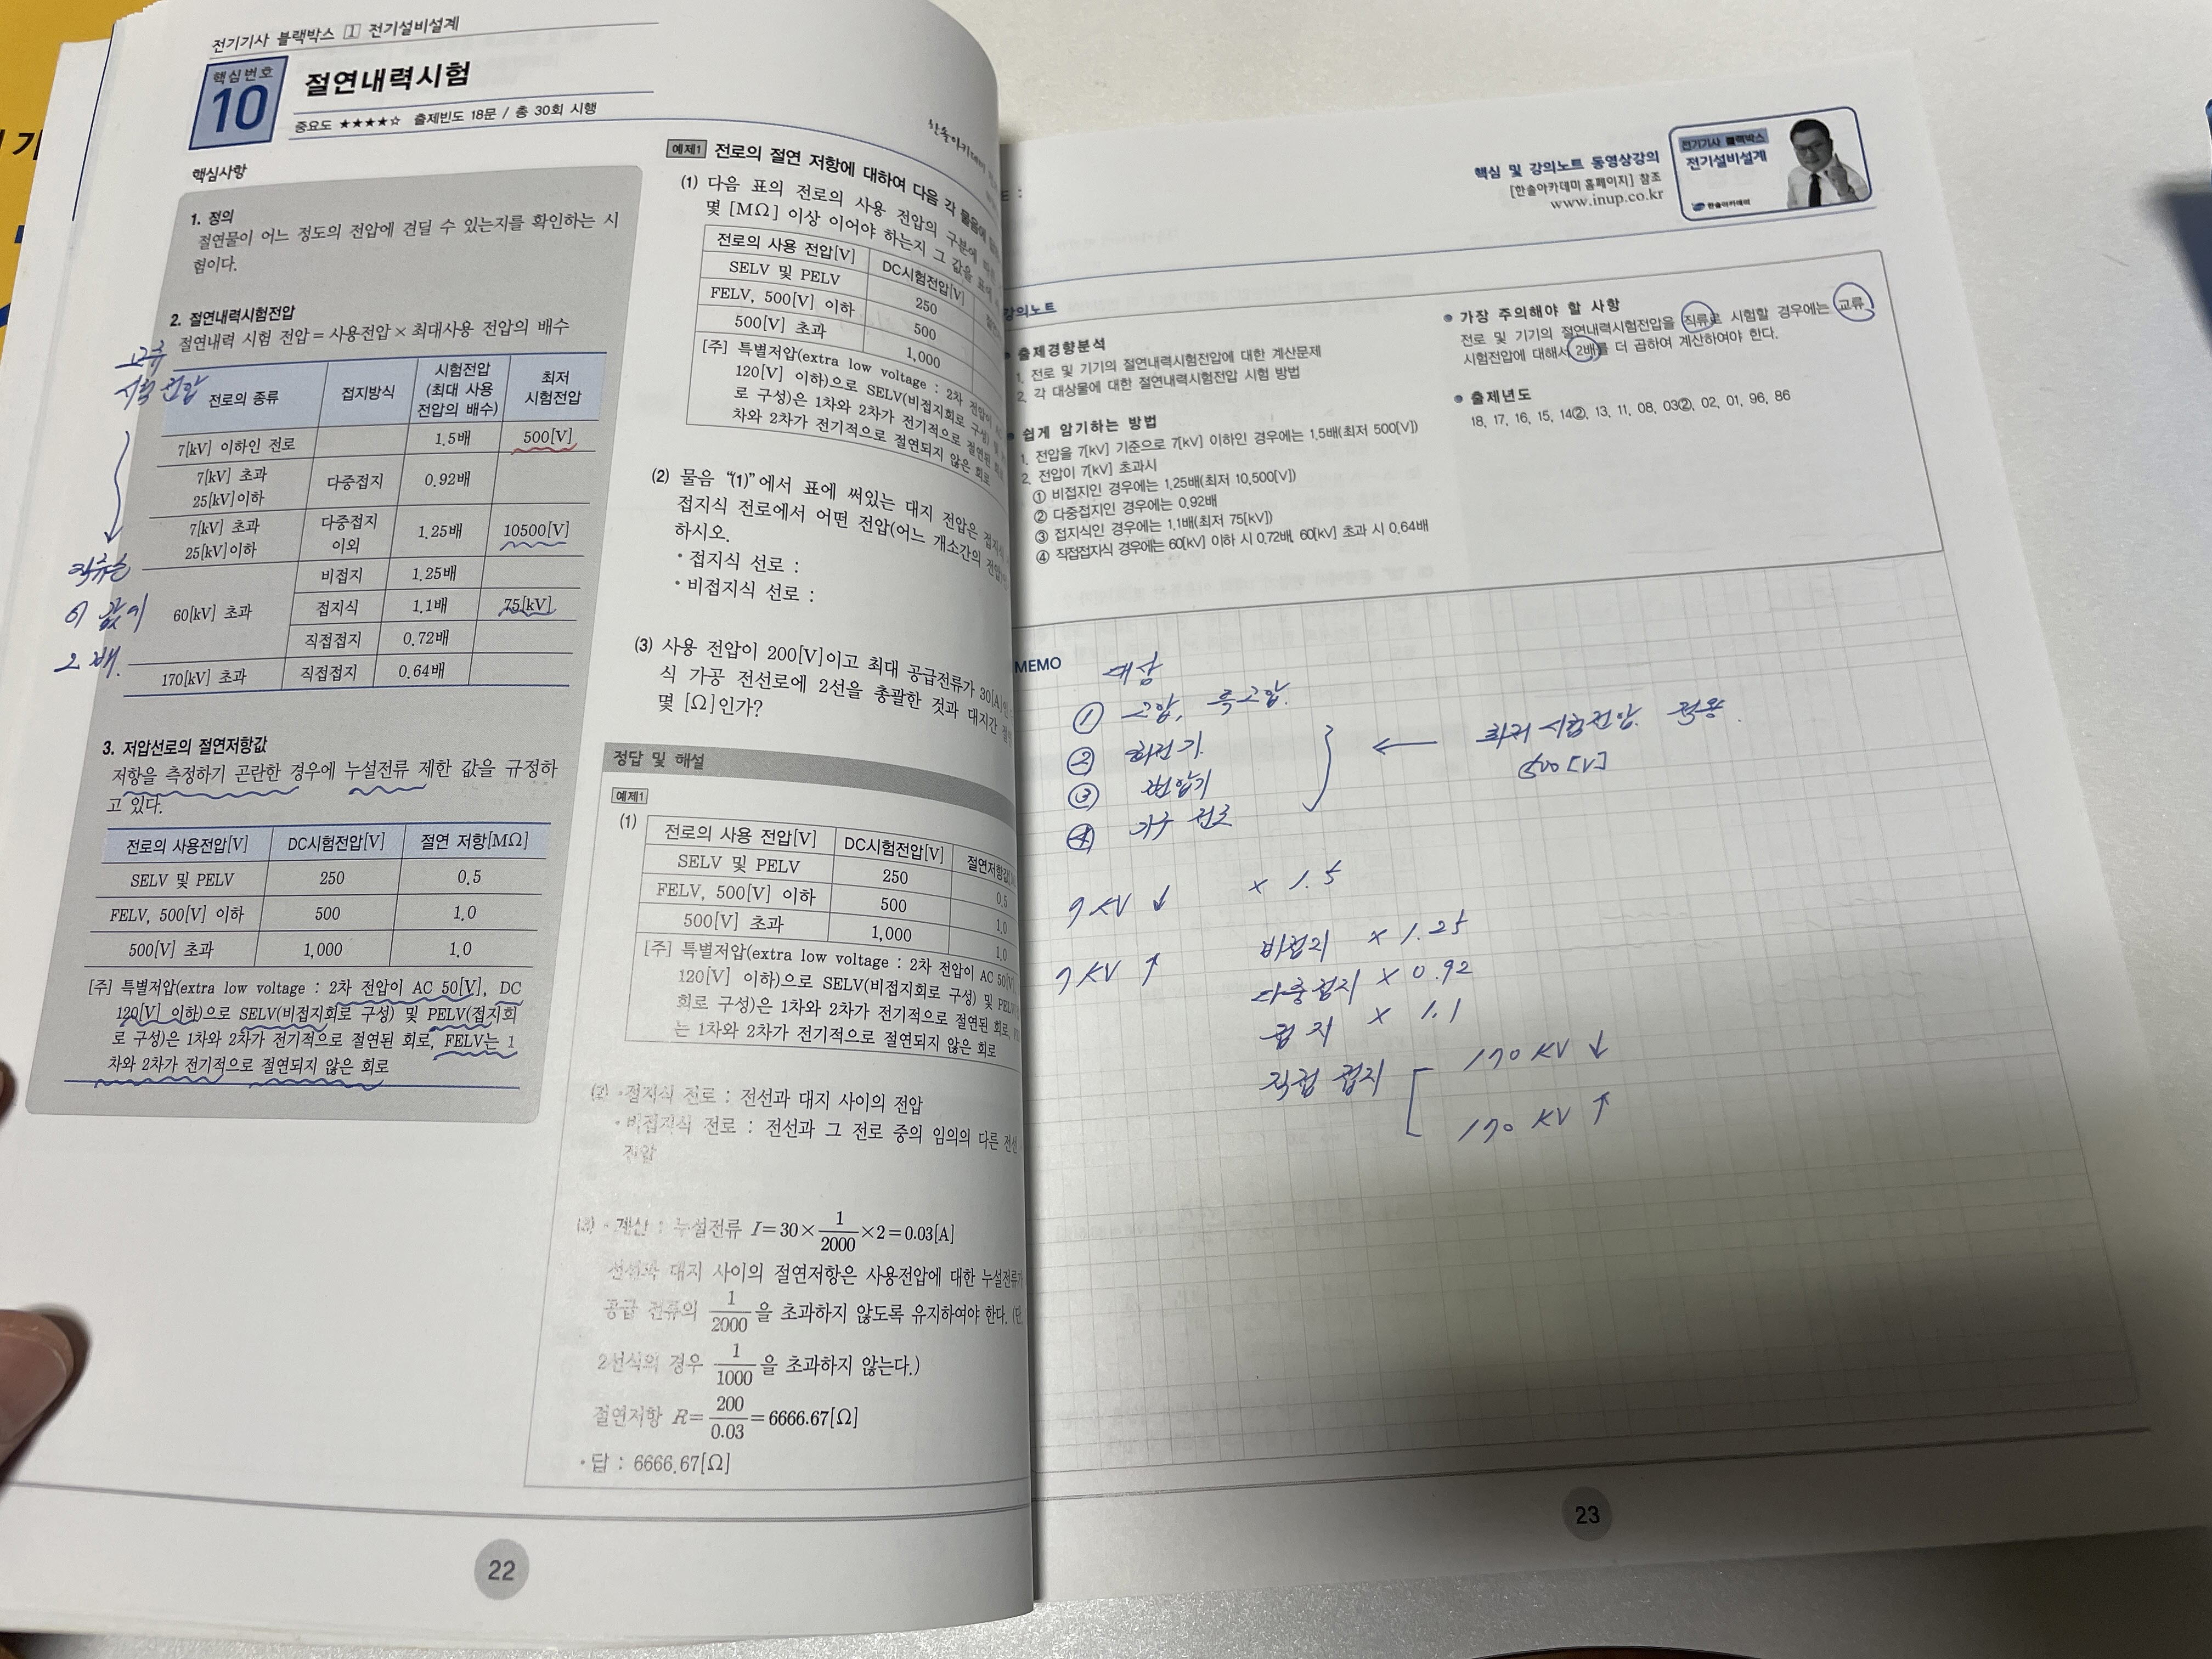 전기기사 블랙박스 1 전기설비설계
핵심번호
10
절연내력시험
중요도 ★★★★☆ 출제빈도 18문 / 총 30회 시행
핵심사항
1. 정의
절연물이 어느 정도의 전압에 견딜 수 있는지를 확인하는 시
험이다.
2. 절연내력시험전압
절연내력 시험 전압 = 사용전압 × 최대사용 전압의 배수
교류
시험 전압
직류는
이 값에
2배.
전로의 종류 접지방식 시험전압 (최대 사용 전압의 배수) 최저 시험전압
7[kV] 이하인 전로 1.5배 500[V]
7[kV] 초과 25[kV]이하 다중접지 0.92배
7[kV] 초과 25[kV]이하 다중접지 이외 1.25배 10500[V]
60[kV] 초과 비접지 1.25배
접지식 1.1배 75[kV]
직접접지 0.72배
170[kV] 초과 직접접지 0.64배
3. 저압선로의 절연저항값
저항을 측정하기 곤란한 경우에 누설전류 제한 값을 규정하
고 있다.
전로의 사용전압[V] DC시험전압[V] 절연 저항[MΩ]
SELV 및 PELV 250 0.5
FELV, 500[V] 이하 500 1.0
500[V] 초과 1,000 1.0
[주] 특별저압(extra low voltage : 2차 전압이 AC 50[V], DC
120[V] 이하)으로 SELV(비접지회로 구성) 및 PELV(접지회
로 구성)은 1차와 2차가 전기적으로 절연된 회로, FELV는 1
차와 2차가 전기적으로 절연되지 않은 회로
22
예제1 전로의 절연 저항에 대하여 다음 각 물음에
(1) 다음 표의 전로의 사용 전압의 구분에
몇 [MΩ] 이상 이어야 하는지 그 값을 표에
전로의 사용 전압[V] DC시험전압[V]
SELV 및 PELV 250
FELV, 500[V] 이하 500
500[V] 초과 1,000
[주] 특별저압(extra low voltage : 2차 전압이
120[V] 이하)으로 SELV(비접지회로 구성)
로 구성)은 1차와 2차가 전기적으로 절연된
차와 2차가 전기적으로 절연되지 않은 회로
(2) 물음 “(1)”에서 표에 써있는 대지 전압은 접지
접지식 전로에서 어떤 전압(어느 개소간의 전압)
하시오.
• 접지식 선로 :
• 비접지식 선로 :
(3) 사용 전압이 200[V]이고 최대 공급전류가 30[A]인
식 가공 전선로에 2선을 총괄한 것과 대지간
몇 [Ω]인가?
정답 및 해설
예제1
(1)
전로의 사용 전압[V] DC시험전압[V] 절연저항값
SELV 및 PELV 250 0.5
FELV, 500[V] 이하 500 1.0
500[V] 초과 1,000 1.0
[주] 특별저압(extra low voltage : 2차 전압이 AC 50[V]
120[V] 이하)으로 SELV(비접지회로 구성) 및
회로 구성)은 1차와 2차가 전기적으로 절연된 회로,
는 1차와 2차가 전기적으로 절연되지 않은 회로
(2) • 접지식 전로 : 전선과 대지 사이의 전압
• 비접지식 전로 : 전선과 그 전로 중의 임의의 다른 전선
전압
(3) • 계산 : 누설전류 I=30×1/2000×2=0.03[A]
전선과 대지 사이의 절연저항은 사용전압에 대한 누설전류가
공급 전류의 1/2000을 초과하지 않도록 유지하여야 한다. (단,
2선식의 경우 1/1000을 초과하지 않는다.)
절연저항 R=200/0.03=6666.67[Ω]
• 답 : 6666.67[Ω]
핵심 및 강의노트 동영상강의
[한솔아카데미 홈페이지] 참조
www.inup.co.kr
전기기사 블랙박스
전기설비설계
한솔아카데미
강의노트
출제경향분석
1. 전로 및 기기의 절연내력시험전압에 대한 계산문제
2. 각 대상물에 대한 절연내력시험전압 시험 방법
쉽게 암기하는 방법
1. 전압을 7[kV] 기준으로 7[kV] 이하인 경우에는 1.5배(최저 500[V])
2. 전압이 7[kV] 초과시
① 비접지인 경우에는 1.25배(최저 10,500[V])
② 다중접지인 경우에는 0.92배
③ 접지식인 경우에는 1.1배(최저 75[kV])
④ 직접접지식 경우에는 60[kV] 이하 시 0.72배, 60[kV] 초과 시 0.64배
가장 주의해야 할 사항
전로 및 기기의 절연내력시험전압을 직류로 시험할 경우에는 교류
시험전압에 대해서 2배를 더 곱하여 계산하여야 한다.
출제년도
18, 17, 16, 15, 14②, 13, 11, 08, 03②, 02, 01, 96, 86
MEMO
대상
① 고압, 특고압.
② 회전기
③ 변압기
④ 기구 전로
← 최저 시험전압. 적용.
500 [V]
7 KV ↓ × 1.5
7 KV ↑ 비접지 × 1.25
다중접지 × 0.92
접지 × 1.1
직접 접지 170 KV ↓
170 KV ↑
23